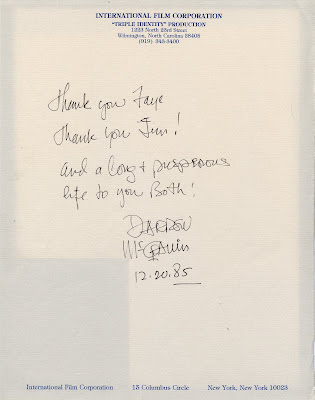 INTERNATIONAL FILM CORPORATION
"TRIPLE IDENTITY" PRODUCTION
1223 North 23rd Street
Wilmington, North Carolina 28405
(919) 343-3400
Thank you Faye
Thank you Jim!
and a long + prosperous
life to you Both!
DARREN
McGAVIN
12.20.85
International Film Corporation 15 Columbus Circle New York, New York 10023